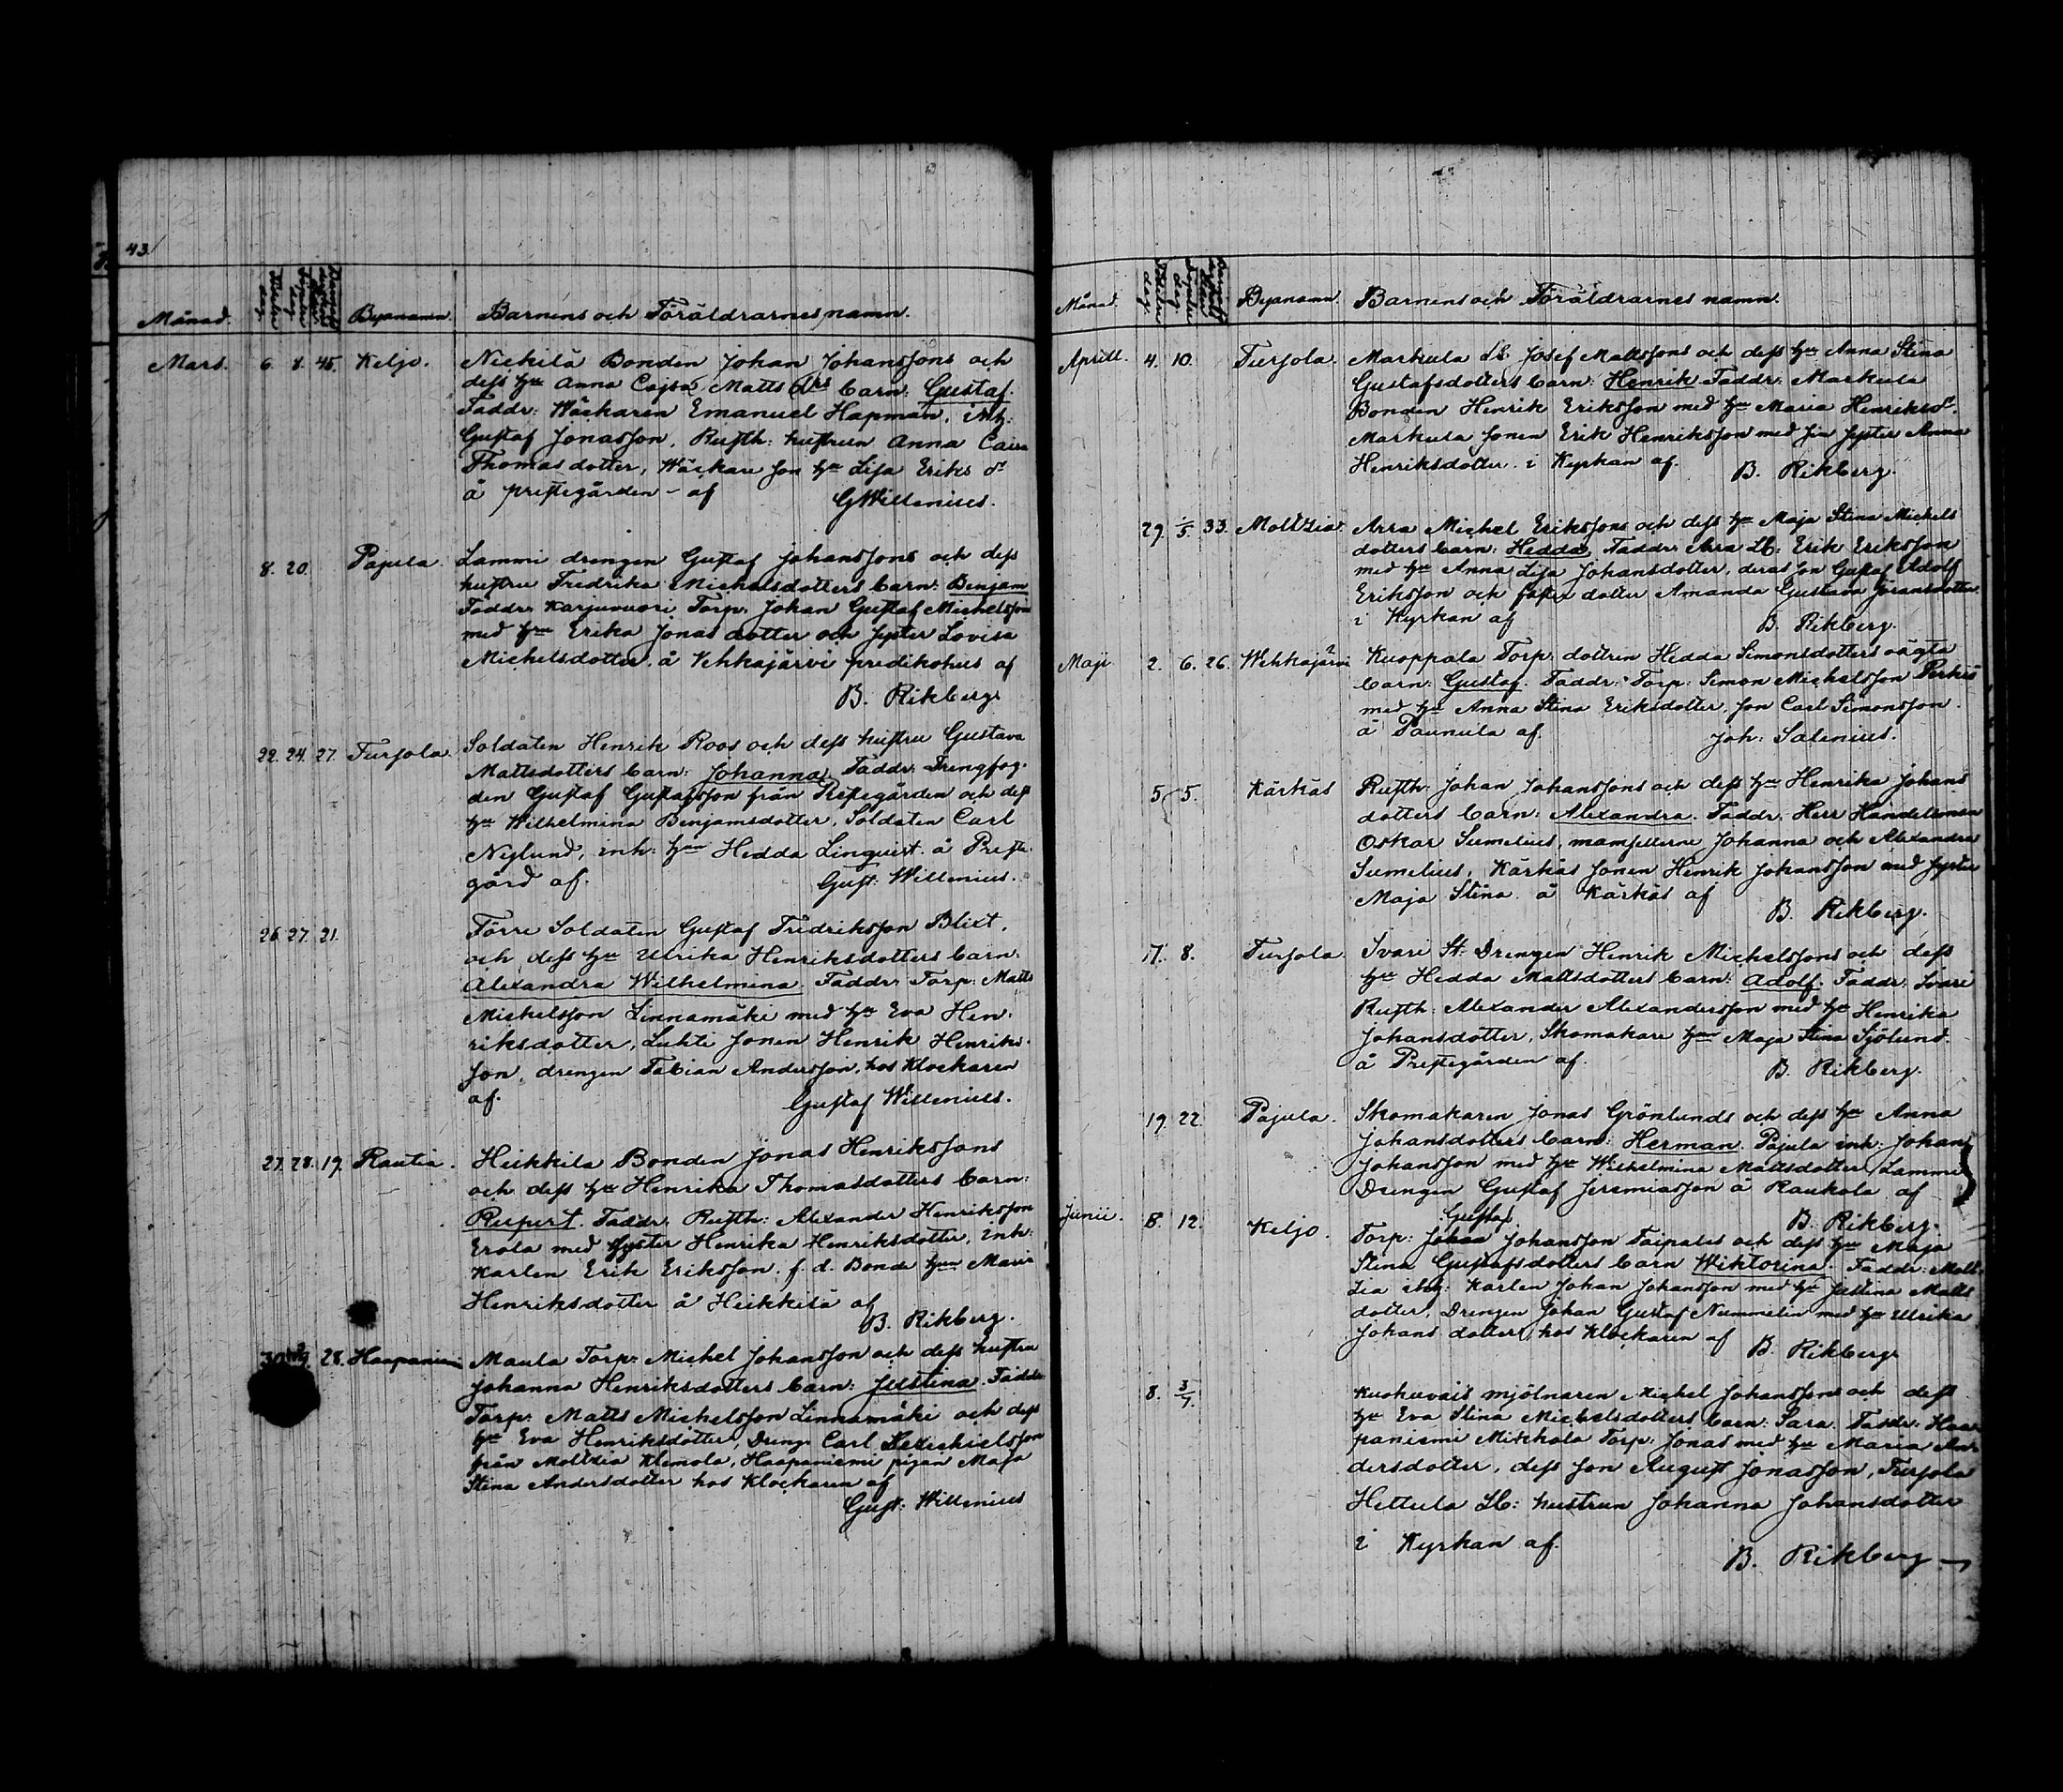 43
Månad. Byanamn. Barnens och Föräldrarnes namn.
Mars. 6. 8. 45. Keljo. Nickilä Bonden Johan Johanssons och
dess hu Anna Cajsa Matts drs barn: Gustaf.
Faddr: Wäckaren Emanuel Hapman, inh:
Gustaf Jonasson, Rusth: hustrun Anna
Thomasdotter, Wäckare son hu Lisa Eriks dr
å prestegården - af GWillenius.
8. 20. Pajula Lammi drengen Gustaf Johanssons och dess
hustru Fredrika Michelsdotters barn: Benjam
Faddr: Karjuvuori Torp: Johan Gustaf Michelsson
med hu Erika Jonasdotter och syster Lovisa
Michelsdotter, å Vehkajärvi predikohus af
B. Rikberg
22. 24. 27. Turjola. Soldaten Henrik Roos och dess hustru Gustava
Mattsdotters barn: Johanna, Faddr: Drengfog-
den Gustaf Gustafsson från Prestegården och dess
hu Wilhelmina Benjamsdotter, Soldaten Carl
Neglund, inh: hun Hedda Linquist å Preste-
gård af. Gust: Willenius.
26. 27. 21. Förre Soldaten Gustaf Fredriksson Blixt,
och dess hu Ulrika Henriksdotters barn:
Alexandra Wilhelmina. Faddr: Torp: Matts
Michelsson Linnamäki med hu Eva Hen-
riksdotter, Luhti sonen Henrik Henriks-
son, drengen Fabian Andersson, hos Klockaren
af. Gustaf Willenius.
27. 28. 19. Rautia. Heikkilä Bonden Jonas Henrikssons
och dess hu Henrika Thomasdotters barn:
Rupert. Faddr: Rusth: Alexander Henriksson
Erola med syster Henrika Henriksdotter, inh:
Karlen Erik Eriksson. f. d. Bonde hun Maria
Henriksdotter å Heikkilä af
B. Rikberg.
28. Haapaniemi Maula Torp: Michel Johansson och dess hustru
Johanna Henriksdotters barn: Justina. Faddr:
Torp: Matts Michelsson Linnamäki och dess
hu Eva Henriksdotter, Dreng: Carl
från Moltzia Klemola, Haapaniemi pigan Maja
Stina Andersdotter hos Klockaren af
Gust: Willenius
Månad. Byanamn. Barnens och Föräldrarnes namn.
Aprill. 4. 10. Turjola. Markula Josef Mattssons och dess hu Anna Stina
Gustafsdotters barn: Henrik Faddr: Markula
Bonden Henrik Eriksson med hu Maria Henriksdr.
Markula sonen Erik Henriksson med sin syster Anna
Henriksdotter. i Kyrkan af. B. Rikberg.
29. 1/5 33. Moltzia. Arra Michel Erikssons och dess hu Maja Stina Michels
dotters barn: Hedda, Faddr: Arra Lb: Erik Eriksson
med hu Anna Lisa Johansdotter, deras son Gustaf Adolf
Eriksson och foster dotter Amanda Gustava Göransdotter.
i Kyrkan af B. Rikberg.
Maji 2. 6. 26. Wehkajärvi Kuoppala Torp: dottren Hedda Simonsdotters oägta
barn: Gustaf. Faddr: Torp: Simon Michelsson
med hu Anna Stina Eriksdotter, son Carl Simonsson.
å Paunula af. Joh: Salenius.
5. 5. Kärkäs Rusth: Johan Johanssons och dess hu Henrika Johans
dotters barn: Alexandra. Faddr: Herr Handelsman
Oskar Sumelius, mamsellerne Johanna och Alexandra
Sumelius, Kärkäs sonen Henrik Johansson med syster
Maja Stina å Kärkäs af
B. Rikberg.
17. 8. Turjola Ivari St: Drengen Henrik Michelssons och dess
hu Hedda Mattsdotters barn: Adolf. Faddr: Ivari
Rusth: Alexander Alexandersson med hu Henrika
Johansdotter, Skomakare hun Maja Stina Sjölund.
å Prestegården af. B. Rikberg.
19. 22. Pajula. Skomakaren Jonas Grönlunds och dess hu Anna
Johansdotters barn: Herman. Pajula inh: Johan
Johansson med hu Wilhelmina Mattsdotter, Lammi
Drengen Gustaf Jeremiasson å Raukola af
B. Rikberg.
Junii. 8. 12. Keljo. Gustaf
Torp: Johan Johansson Taipales och dess hu Maja
Stina Gustafsdotters barn Wiktorina. Faddr: Molt-
zia inh: Karlen Johan Johansson med hu Justina Matts
dotter, Drengen Johan Gustaf Nummelin med hu Ulrika
Johans dotter, hos Klockaren af B. Rikberg
8. 3/7. Kuokuvais mjölnaren Michel Johanssons och dess
hu Eva Stina Michelsdotters barn: Sara. Faddr: Haa-
paniemi Mikkola Torp: Jonas med hu Maria An-
dersdotter, dess son August Jonasson, Turjola
Hettula Lb: hustrun Johanna Johansdotter
i Kyrkan af.
B. Rikberg